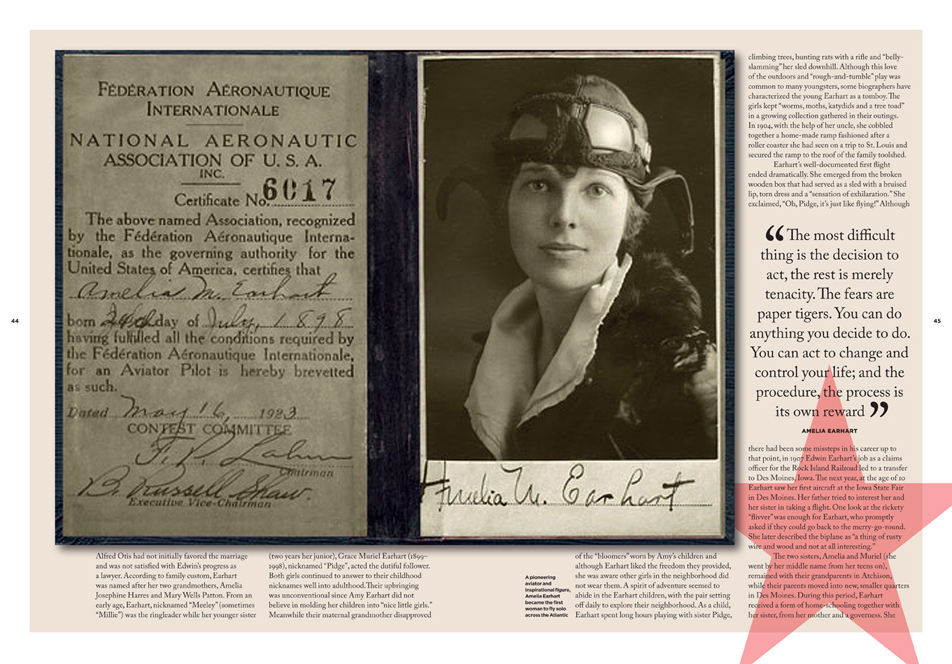 FÉDÉRATION AÉRONAUTIQUE
INTERNATIONALE
NATIONAL AERONAUTIC
ASSOCIATION OF U. S. A.
INC.
Certificate No. 6017
The above named Association, recognized
by the Fédération Aéronautique Interna-
tionale, as the governing authority for the
United States of America, certifies that
Amelia M. Earhart
born 24th day of July, 1898
having fulfilled all the conditions required by
the Fédération Aéronautique Internationale,
for an Aviator Pilot is hereby brevetted
as such.
Dated May 16, 1923
CONTEST COMMITTEE
F. P. Lahm
Chairman
B. Russell Shaw.
Executive Vice-Chairman
Amelia M. Earhart
44
Alfred Otis had not initially favored the marriage
and was not satisfied with Edwin's progress as
a lawyer. According to family custom, Earhart
was named after her two grandmothers, Amelia
Josephine Harres and Mary Wells Patton. From an
early age, Earhart, nicknamed "Meeley" (sometimes
"Millie") was the ringleader while her younger sister
(two years her junior), Grace Muriel Earhart (1899–
1998), nicknamed "Pidge", acted the dutiful follower.
Both girls continued to answer to their childhood
nicknames well into adulthood. Their upbringing
was unconventional since Amy Earhart did not
believe in molding her children into "nice little girls."
Meanwhile their maternal grandmother disapproved
A pioneering
aviator and
inspirational figure,
Amelia Earhart
became the first
woman to fly solo
across the Atlantic
of the "bloomers" worn by Amy's children and
although Earhart liked the freedom they provided,
she was aware other girls in the neighborhood did
not wear them. A spirit of adventure seemed to
abide in the Earhart children, with the pair setting
off daily to explore their neighborhood. As a child,
Earhart spent long hours playing with sister Pidge,
climbing trees, hunting rats with a rifle and "belly-
slamming" her sled downhill. Although this love
of the outdoors and "rough-and-tumble" play was
common to many youngsters, some biographers have
characterized the young Earhart as a tomboy. The
girls kept "worms, moths, katydids and a tree toad"
in a growing collection gathered in their outings.
In 1904, with the help of her uncle, she cobbled
together a home-made ramp fashioned after a
roller coaster she had seen on a trip to St. Louis and
secured the ramp to the roof of the family toolshed.
Earhart's well-documented first flight
ended dramatically. She emerged from the broken
wooden box that had served as a sled with a bruised
lip, torn dress and a "sensation of exhilaration." She
exclaimed, "Oh, Pidge, it's just like flying!" Although
“ The most difficult
thing is the decision to
act, the rest is merely
tenacity. The fears are
paper tigers. You can do
anything you decide to do.
You can act to change and
control your life; and the
procedure, the process is
its own reward ”
AMELIA EARHART
there had been some missteps in his career up to
that point, in 1907 Edwin Earhart's job as a claims
officer for the Rock Island Railroad led to a transfer
to Des Moines, Iowa. The next year, at the age of 10
Earhart saw her first aircraft at the Iowa State Fair
in Des Moines. Her father tried to interest her and
her sister in taking a flight. One look at the rickety
"flivver" was enough for Earhart, who promptly
asked if they could go back to the merry-go-round.
She later described the biplane as "a thing of rusty
wire and wood and not at all interesting."
The two sisters, Amelia and Muriel (she
went by her middle name from her teens on),
remained with their grandparents in Atchison,
while their parents moved into new, smaller quarters
in Des Moines. During this period, Earhart
received a form of home-schooling together with
her sister, from her mother and a governess. She
45